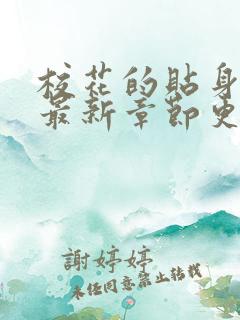 校花的贴身
最新章节更
謝婷婷
未经同意禁止转载